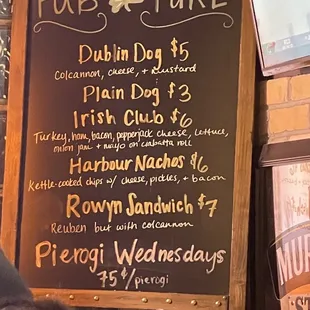 PUB FARE
Dublin Dog $5
Colcannon, cheese, + mustard
Plain Dog $3
Irish Club $6
Turkey, ham, bacon, pepperjack cheese, lettuce,
onion jam + mayo on ciabatta roll
Harbour Nachos $6
Kettle-cooked chips w/ cheese, pickles, + bacon
Rowyn Sandwich $7
Reuben but with colcannon
Pierogi Wednesdays
75¢/pierogi
MUR